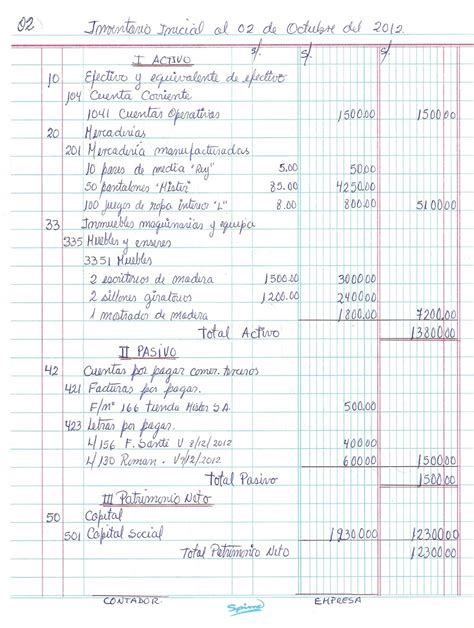 02 Inventario Inicial al 02 de Octubre del 2012
S/. S/. S/.
I ACTIVO
10 Efectivo y equivalente de efectivo
104 Cuenta Corriente
1041 Cuentas Operativas 1500.00 1500.00
20 Mercaderias
201 Mercaderia manufacturadas
10 pares de media "Ruy" 5.00 50.00
50 pantalones "Mister" 85.00 4250.00
100 juegos de ropa interior "L" 8.00 800.00 5100.00
33 Inmuebles maquinarias y equipo
335 Muebles y enseres
3351 Muebles
2 escritorios de madera 1500.00 3000.00
2 sillones giratorios 1200.00 2400.00
1 mostrador de madera 1800.00 7200.00
Total Activo 13800.00
II PASIVO
42 Cuentas por pagar comer. terceros
421 Facturas por pagar.
F/nº 166 tienda Mister S.A 500.00
423 Letras por pagar.
L/156 F. Santé V 8/12/2012 400.00
L/130 Roman. V 9/2/2012 600.00 1500.00
Total Pasivo 1500.00
III Patrimonio Neto
50 Capital
501 Capital Social 12300.00
Total Patrimonio Neto 12300.00
CONTADOR EMPRESA